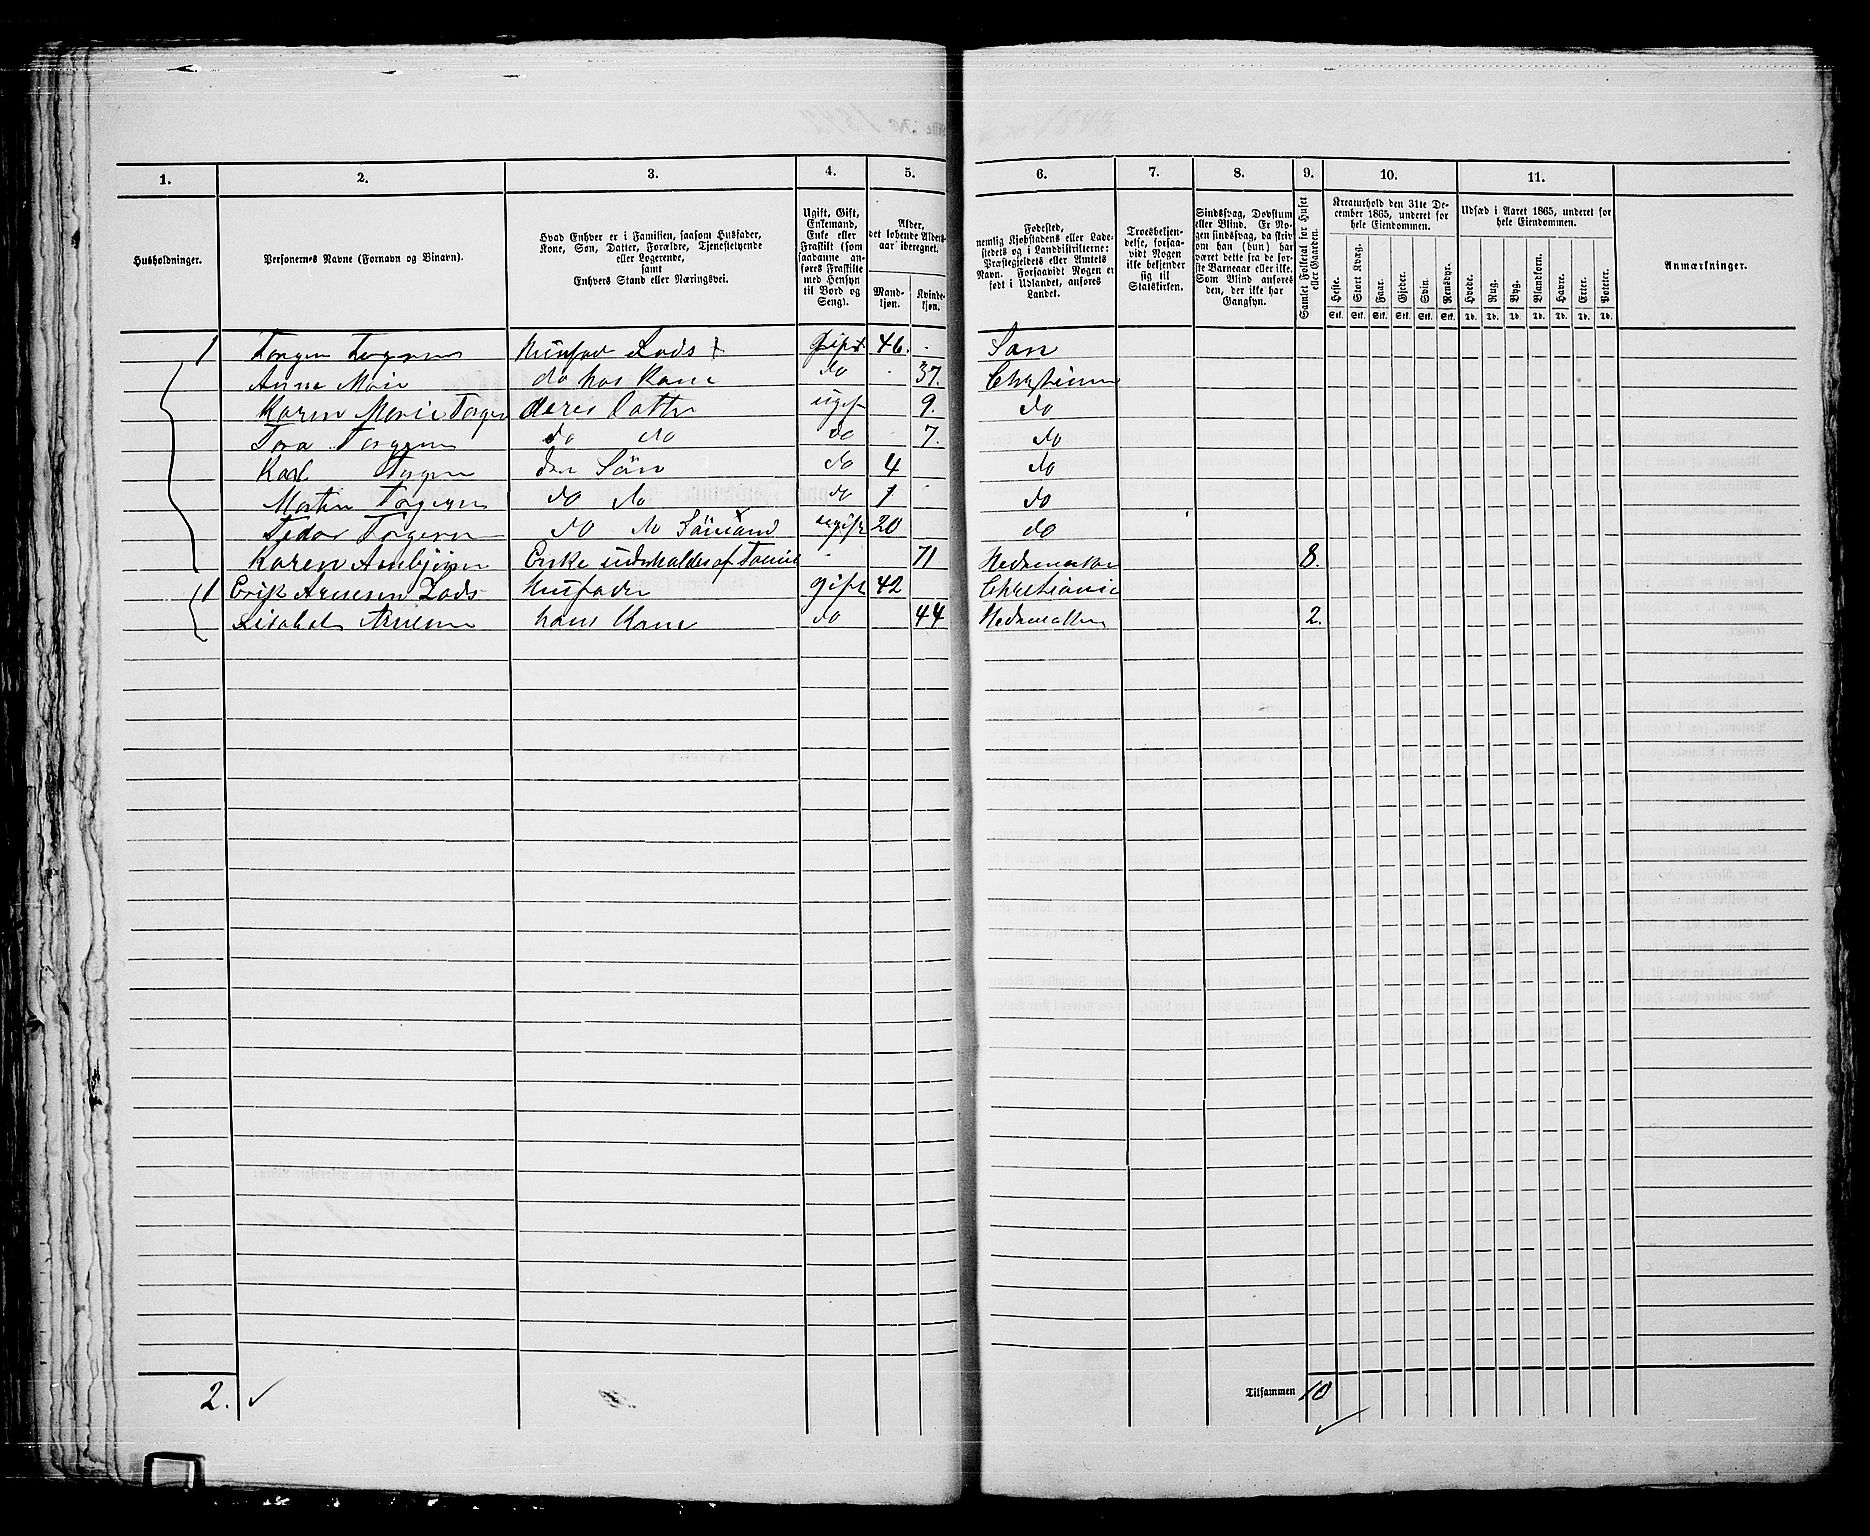 1. 2. 3. 4. 5. 6. 7. 8. 9. 10. 11.
Husholdninger.
Personernes Navne (Fornavn og Binavn).
Hvad Enhver er i Familien, saasom Husfader,
Kone, Søn, Datter, Forældre, Tjenestetyende
eller Logerende,
samt
Enhvers Stand eller Næringsvei.
Ugift, Gift,
Enkemand,
Enke eller
Fraskilt (som
saadanne an-
føres Fraskilte
med Hensyn
til Bord og
Seng).
Alder,
det løbende Alders-
aar iberegnet.
Mand-
kjøn.
Kvinde-
kjøn.
Fødested,
nemlig Kjøbstadens eller Lade-
stedets og i Landdistrikterne:
Præstegjeldets eller Amtets
Navn. Forsaavidt Nogen er
født i Udlandet, anføres
Landet.
Troesbekjen-
delse, forsaa-
vidt Nogen
ikke bekjender
sig til
Statskirken.
Sindssvag, Døvstum
eller Blind. Er No-
gen sindssvag, da skriv
om han (hun) har
været dette fra de før-
ste Barneaar eller ikke.
Som Blind anføres
den, der ikke har
Gangsyn.
Samlet Folketal for Huset
eller Gaarden.
Kreaturhold den 31te De-
cember 1865, underet for
hele Eiendommen.
Heste. Stort Kvæg. Faar. Gjeder. Svin. Rensdyr.
Stk. Stk. Stk. Stk. Stk. Stk.
Udsæd i Aaret 1865, underet for
hele Eiendommen.
Hvede. Rug. Byg. Blandkorn. Havre. Erter. Poteter.
Td. Td. Td. Td. Td. Td. Td.
Anmærkninger.
1 Torgen Torgersen Husfad Lods gift 46. San
Anne Marie do hos Kone do 37.
Karen Marie Torger deres Datter ugift 9. do
Tora Torgersen do do do 7. do
Karl Torgersen Søn do 4 do
Morten Torgersen do do do 1 do
Torgersen do do Sömand ugift 20 do
Karen Enke underholdes af 71 8.
1 Erik Arnesen Lods Husfader gift 42 Christiania
Arnesen hans Kone do 44 2.
2. Tilsammen 10